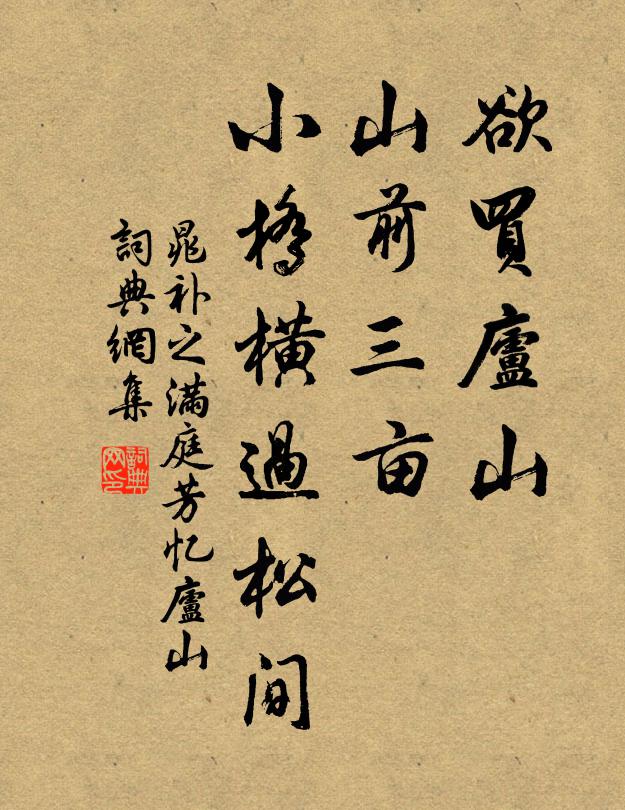 欲買廬山
山前三亩
小橋橫過松间
晁补之满庭芳忆廬山
詞典網集
詞典网印